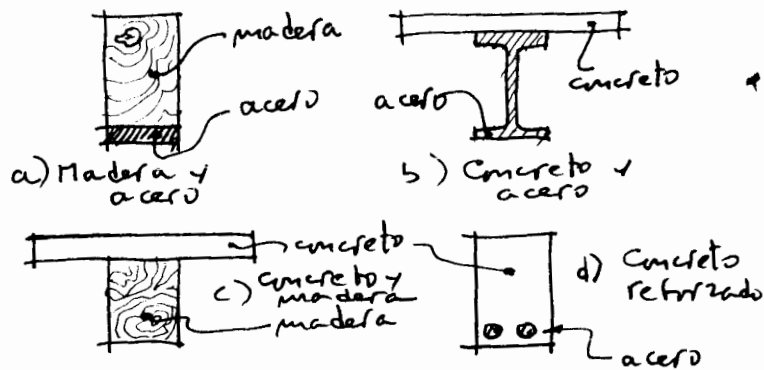 madera
acero
a) Madera y
acero
concreto
acero
b) Concreto y
acero
concreto
c) Concreto y
madera
madera
d) Concreto
reforzado
acero